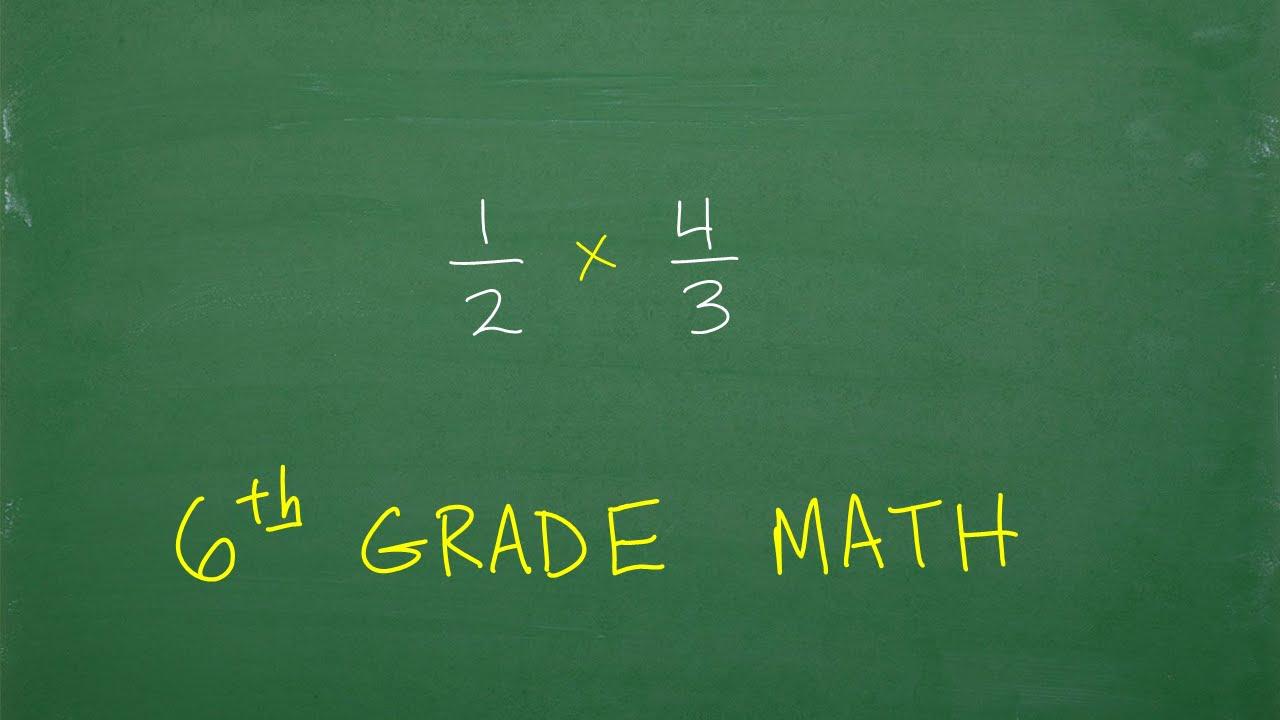 1/2 × 4/3
6th GRADE MATH